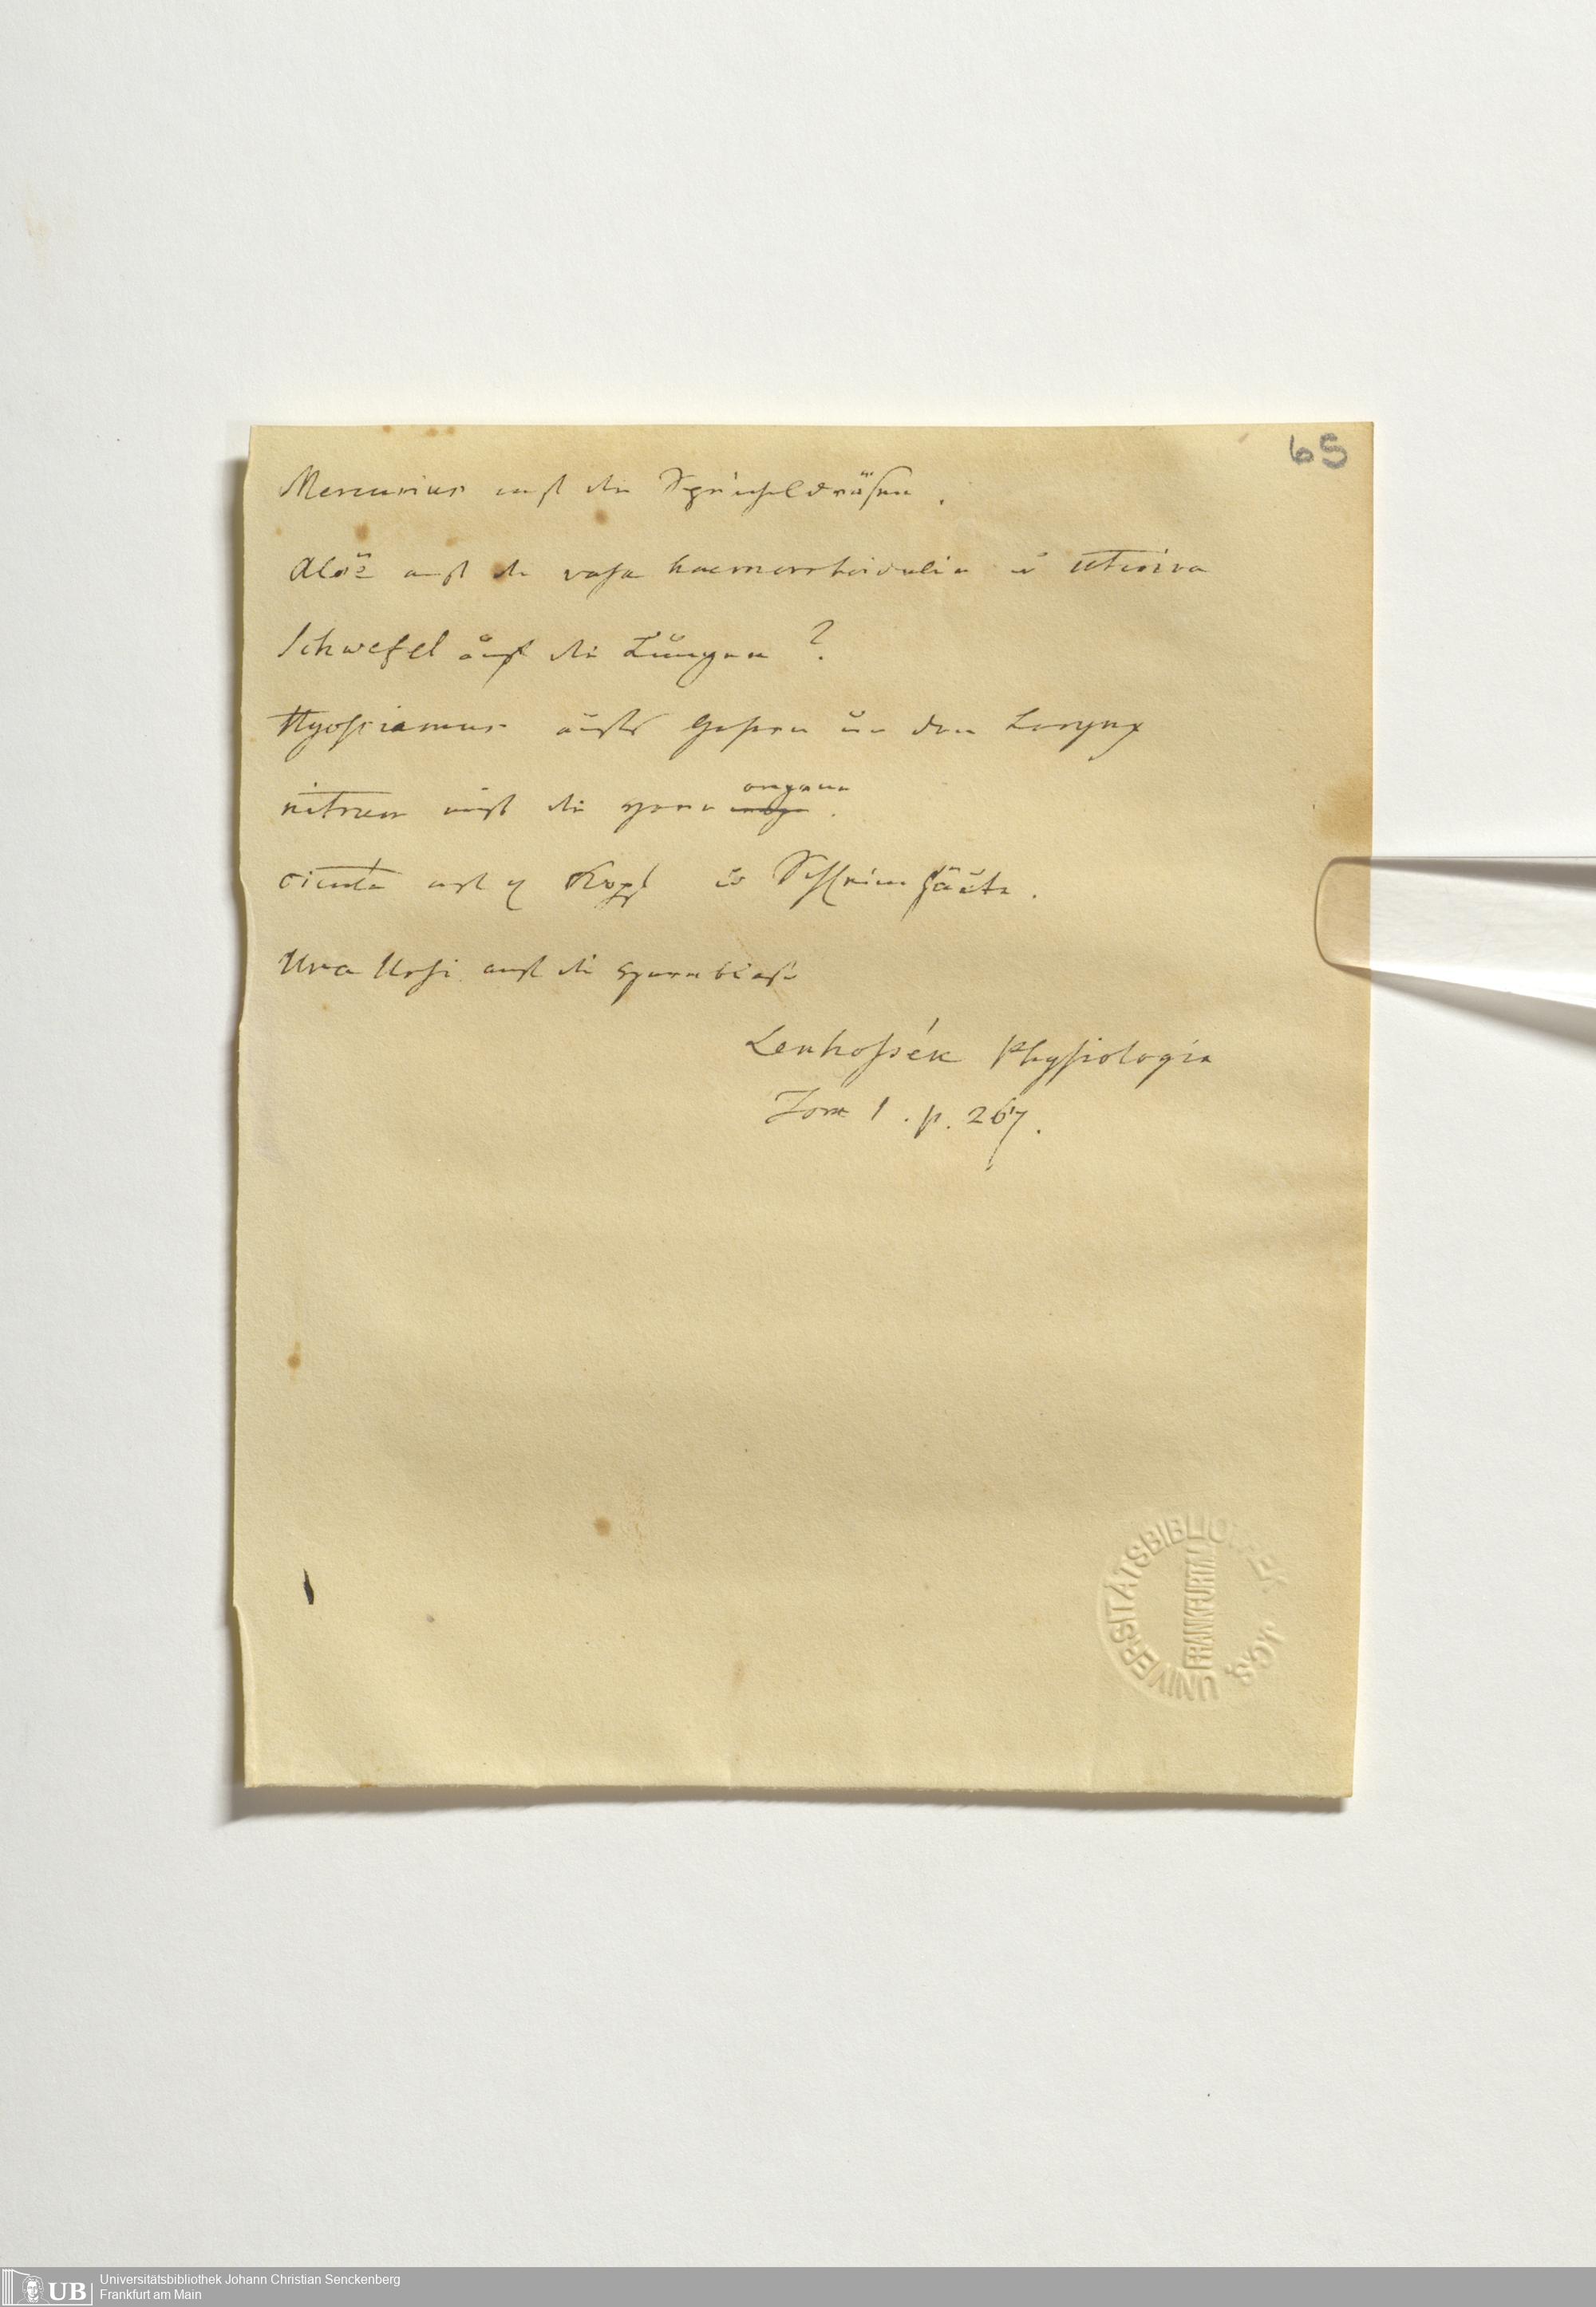 65
Mercurius auf die Speicheldrüsen.
Aloë auf die vasa haemorrhoidalia u uterina
Schwefel auf die Lungen?
Hyosciamus aufs Gehirn u den Larynx
nitrum auf die Harn organe.
cicuta auf Kopf u Schleimhäute.
Uva Ursi auf die Harnblase
Lenhossék Physiologia
Tom 1. p. 267.
UNIVERSITÄTSBIBLIOTHEK JCS
FRANKFURT/M.
UB
Universitätsbibliothek Johann Christian Senckenberg
Frankfurt am Main